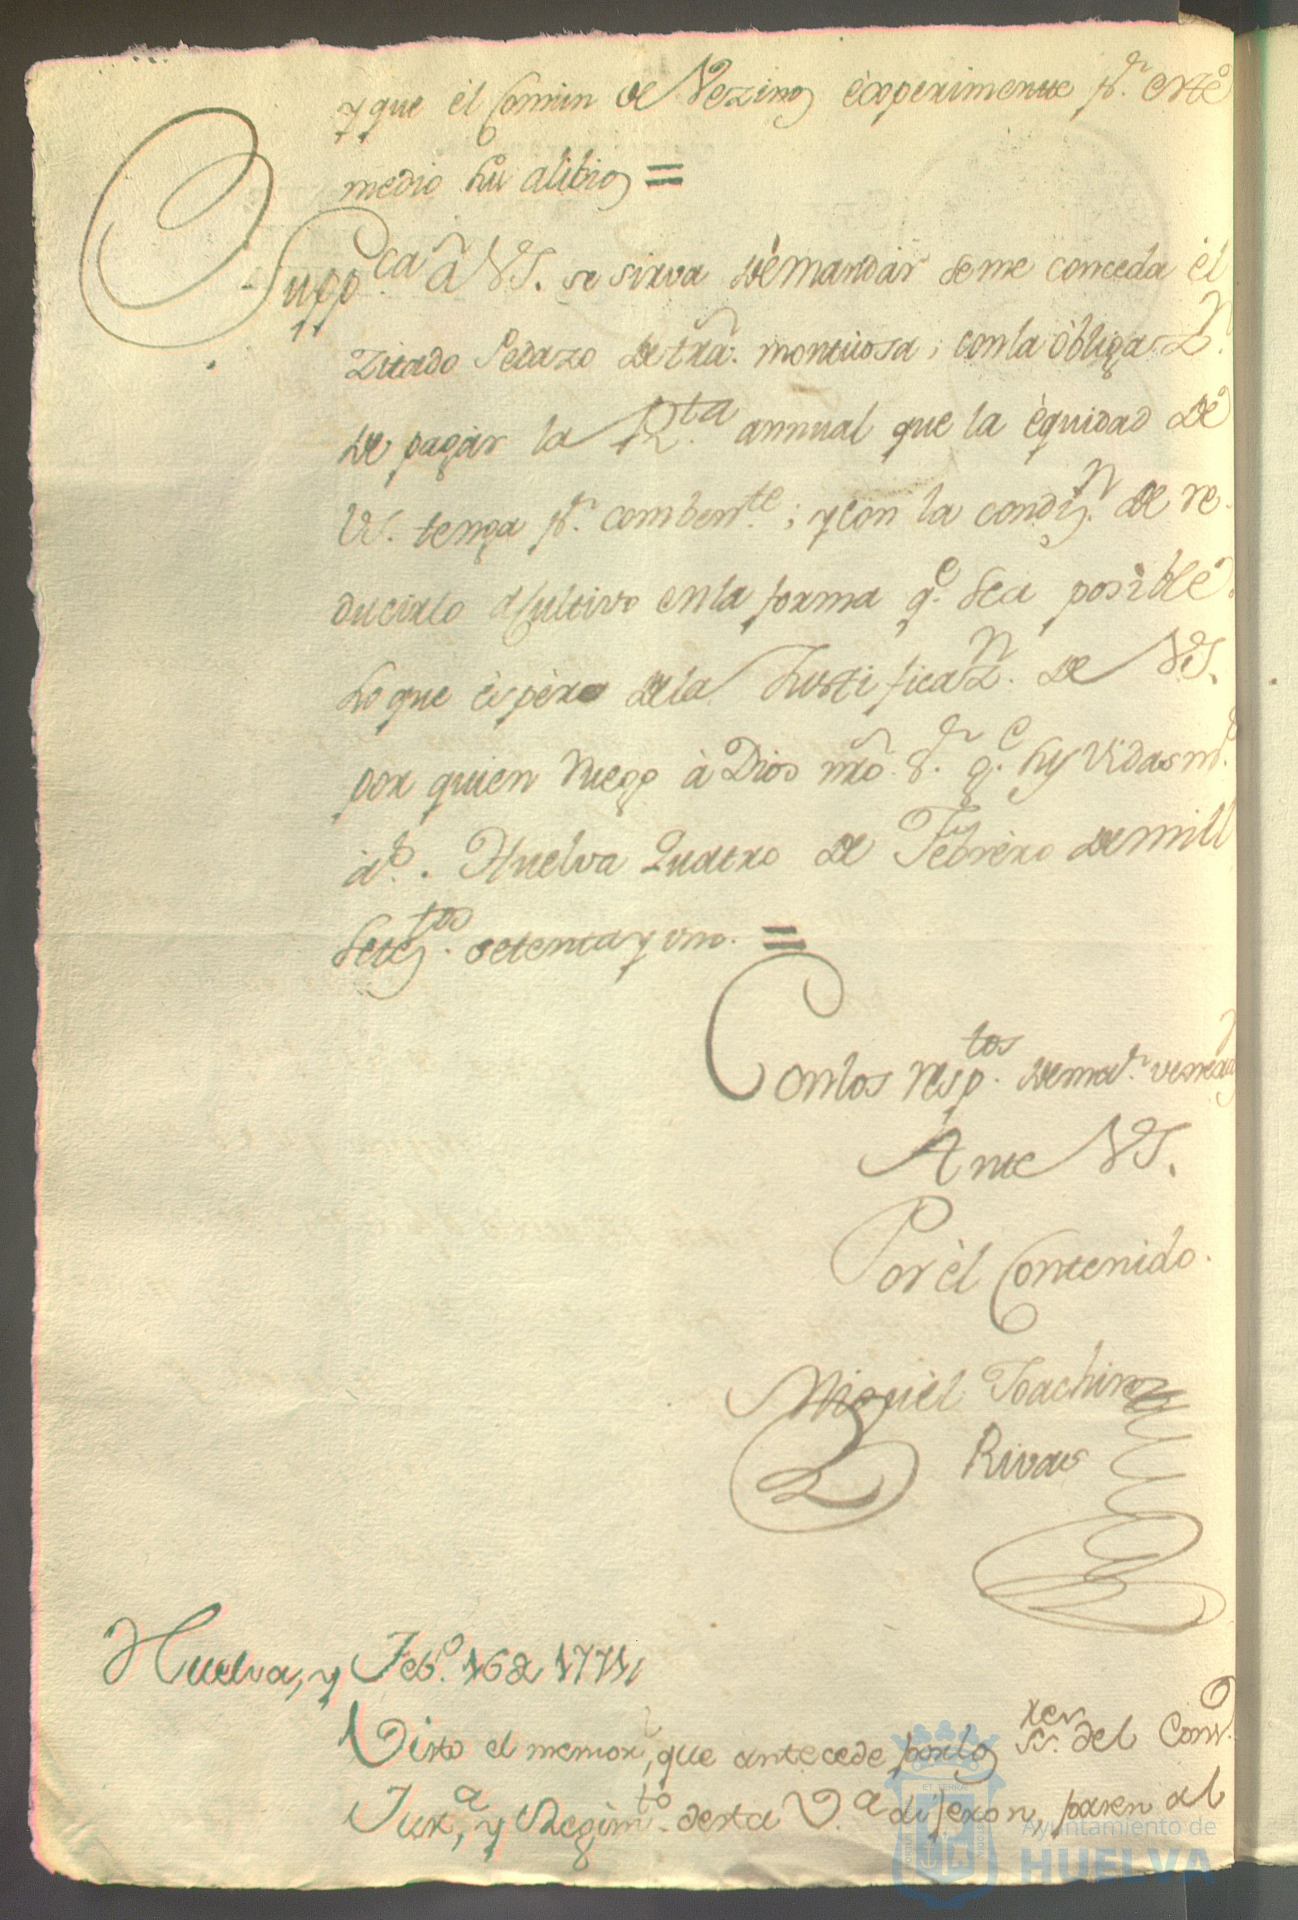 y que èl Comun de Vezinos èxperimente pr. este
medio su alibio =
Suppca. â VS. se sirva de mandàr se me conceda èl
Zitado Pedazo de trâ. montuosa; con la òbligazn.
de pagàr la Rta. annual que la èquidad de
VS. tenga pr. combente.; y con la condizn. de re-
ducirlo a Cultivo en la forma qe. sea posible.
Lo que èspèra de la Justificazn. de VS.
por quien Ruego à Dios nrô. Sr. ge. sus Vidas ms.
as. Huelva Quatro de Febrèro de mill
Setezos. setenta y uno. =
Con los resptos. de mar. veneraz
Ante VS.
Por èl Contenido.
Miguèl Joachin
Rivas
Huelva, y Febo. 16 de 1771,
Visto el memorl, que antecede por los Sres. del Conso.
Jusa, y Regimto. desta Va. dijeron, pasen al
Ayuntamiento de
HUELVA